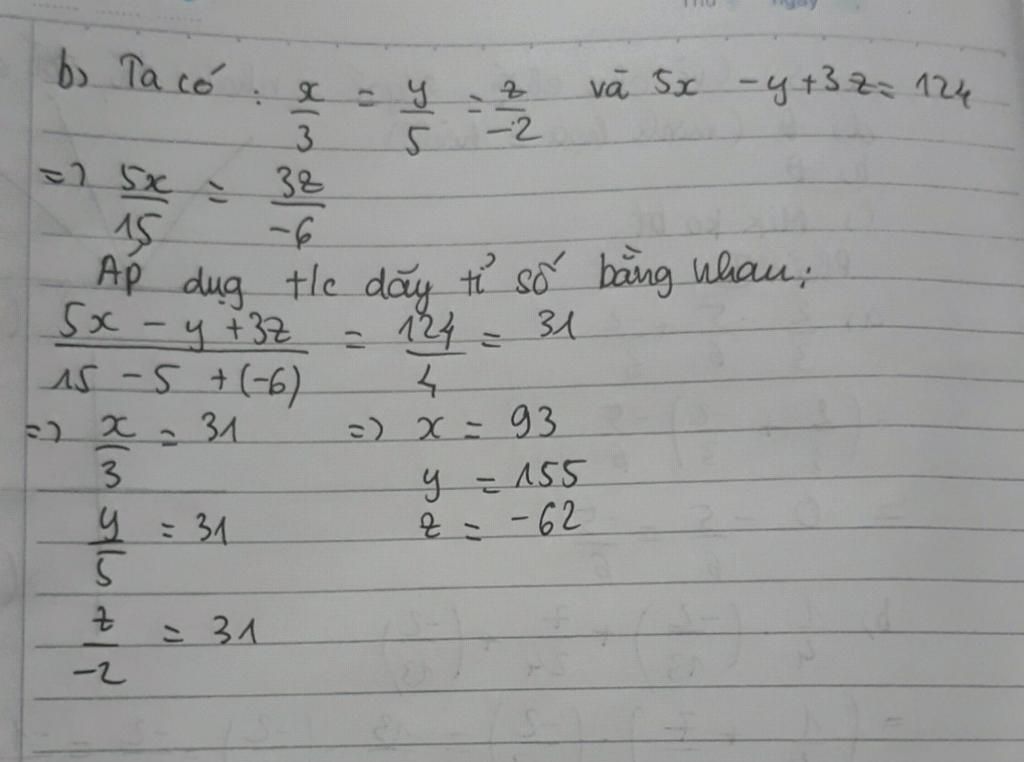 Thứ ngày
b) Ta có : x/3 = y/5 = z/-2 và 5x - y + 3z = 124
=> 5x/15 = 3z/-6
Áp dụg t/c dãy tỉ số bằng nhau:
5x - y + 3z / 15 - 5 + (-6) = 124/4 = 31
=> x/3 = 31 => x = 93
y = 155
y/5 = 31 z = -62
z/-2 = 31